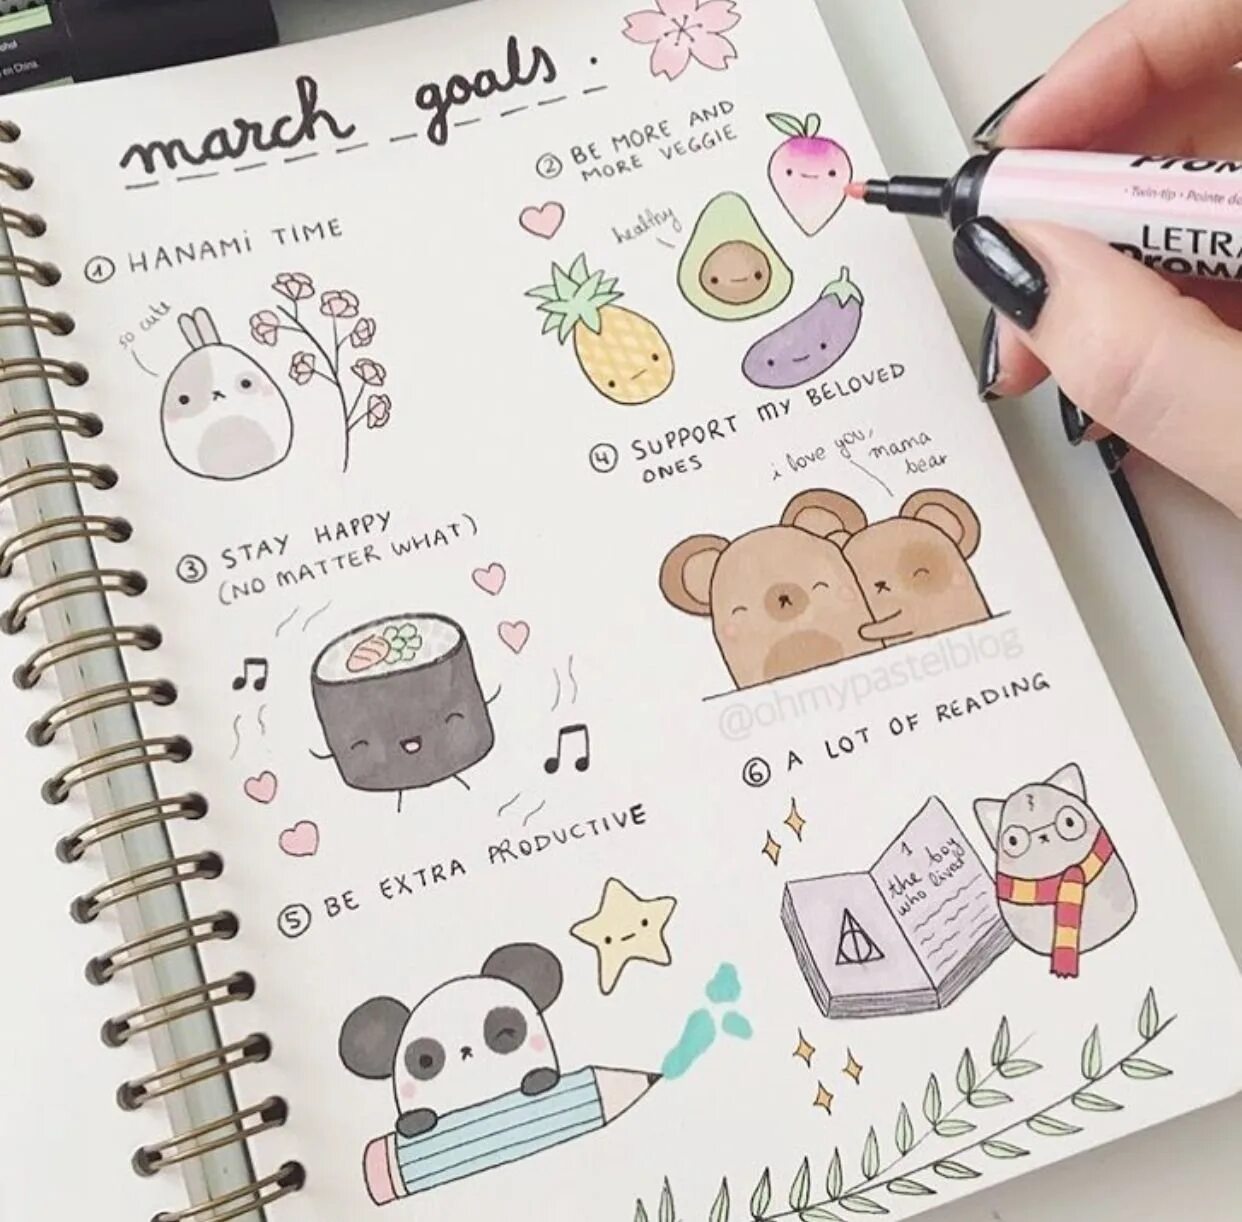 en China.
march goals.
① HANAMI TIME
so cute
② BE MORE AND
MORE VEGGIE
healthy
③ STAY HAPPY
(NO MATTER WHAT)
④ SUPPORT MY BELOVED
ONES
i love you,
mama
bear
@ohmypastelblog
⑤ BE EXTRA PRODUCTIVE
⑥ A LOT OF READING
1
the boy
who lived
Twin-tip • Pointe
LETRA
ProMA